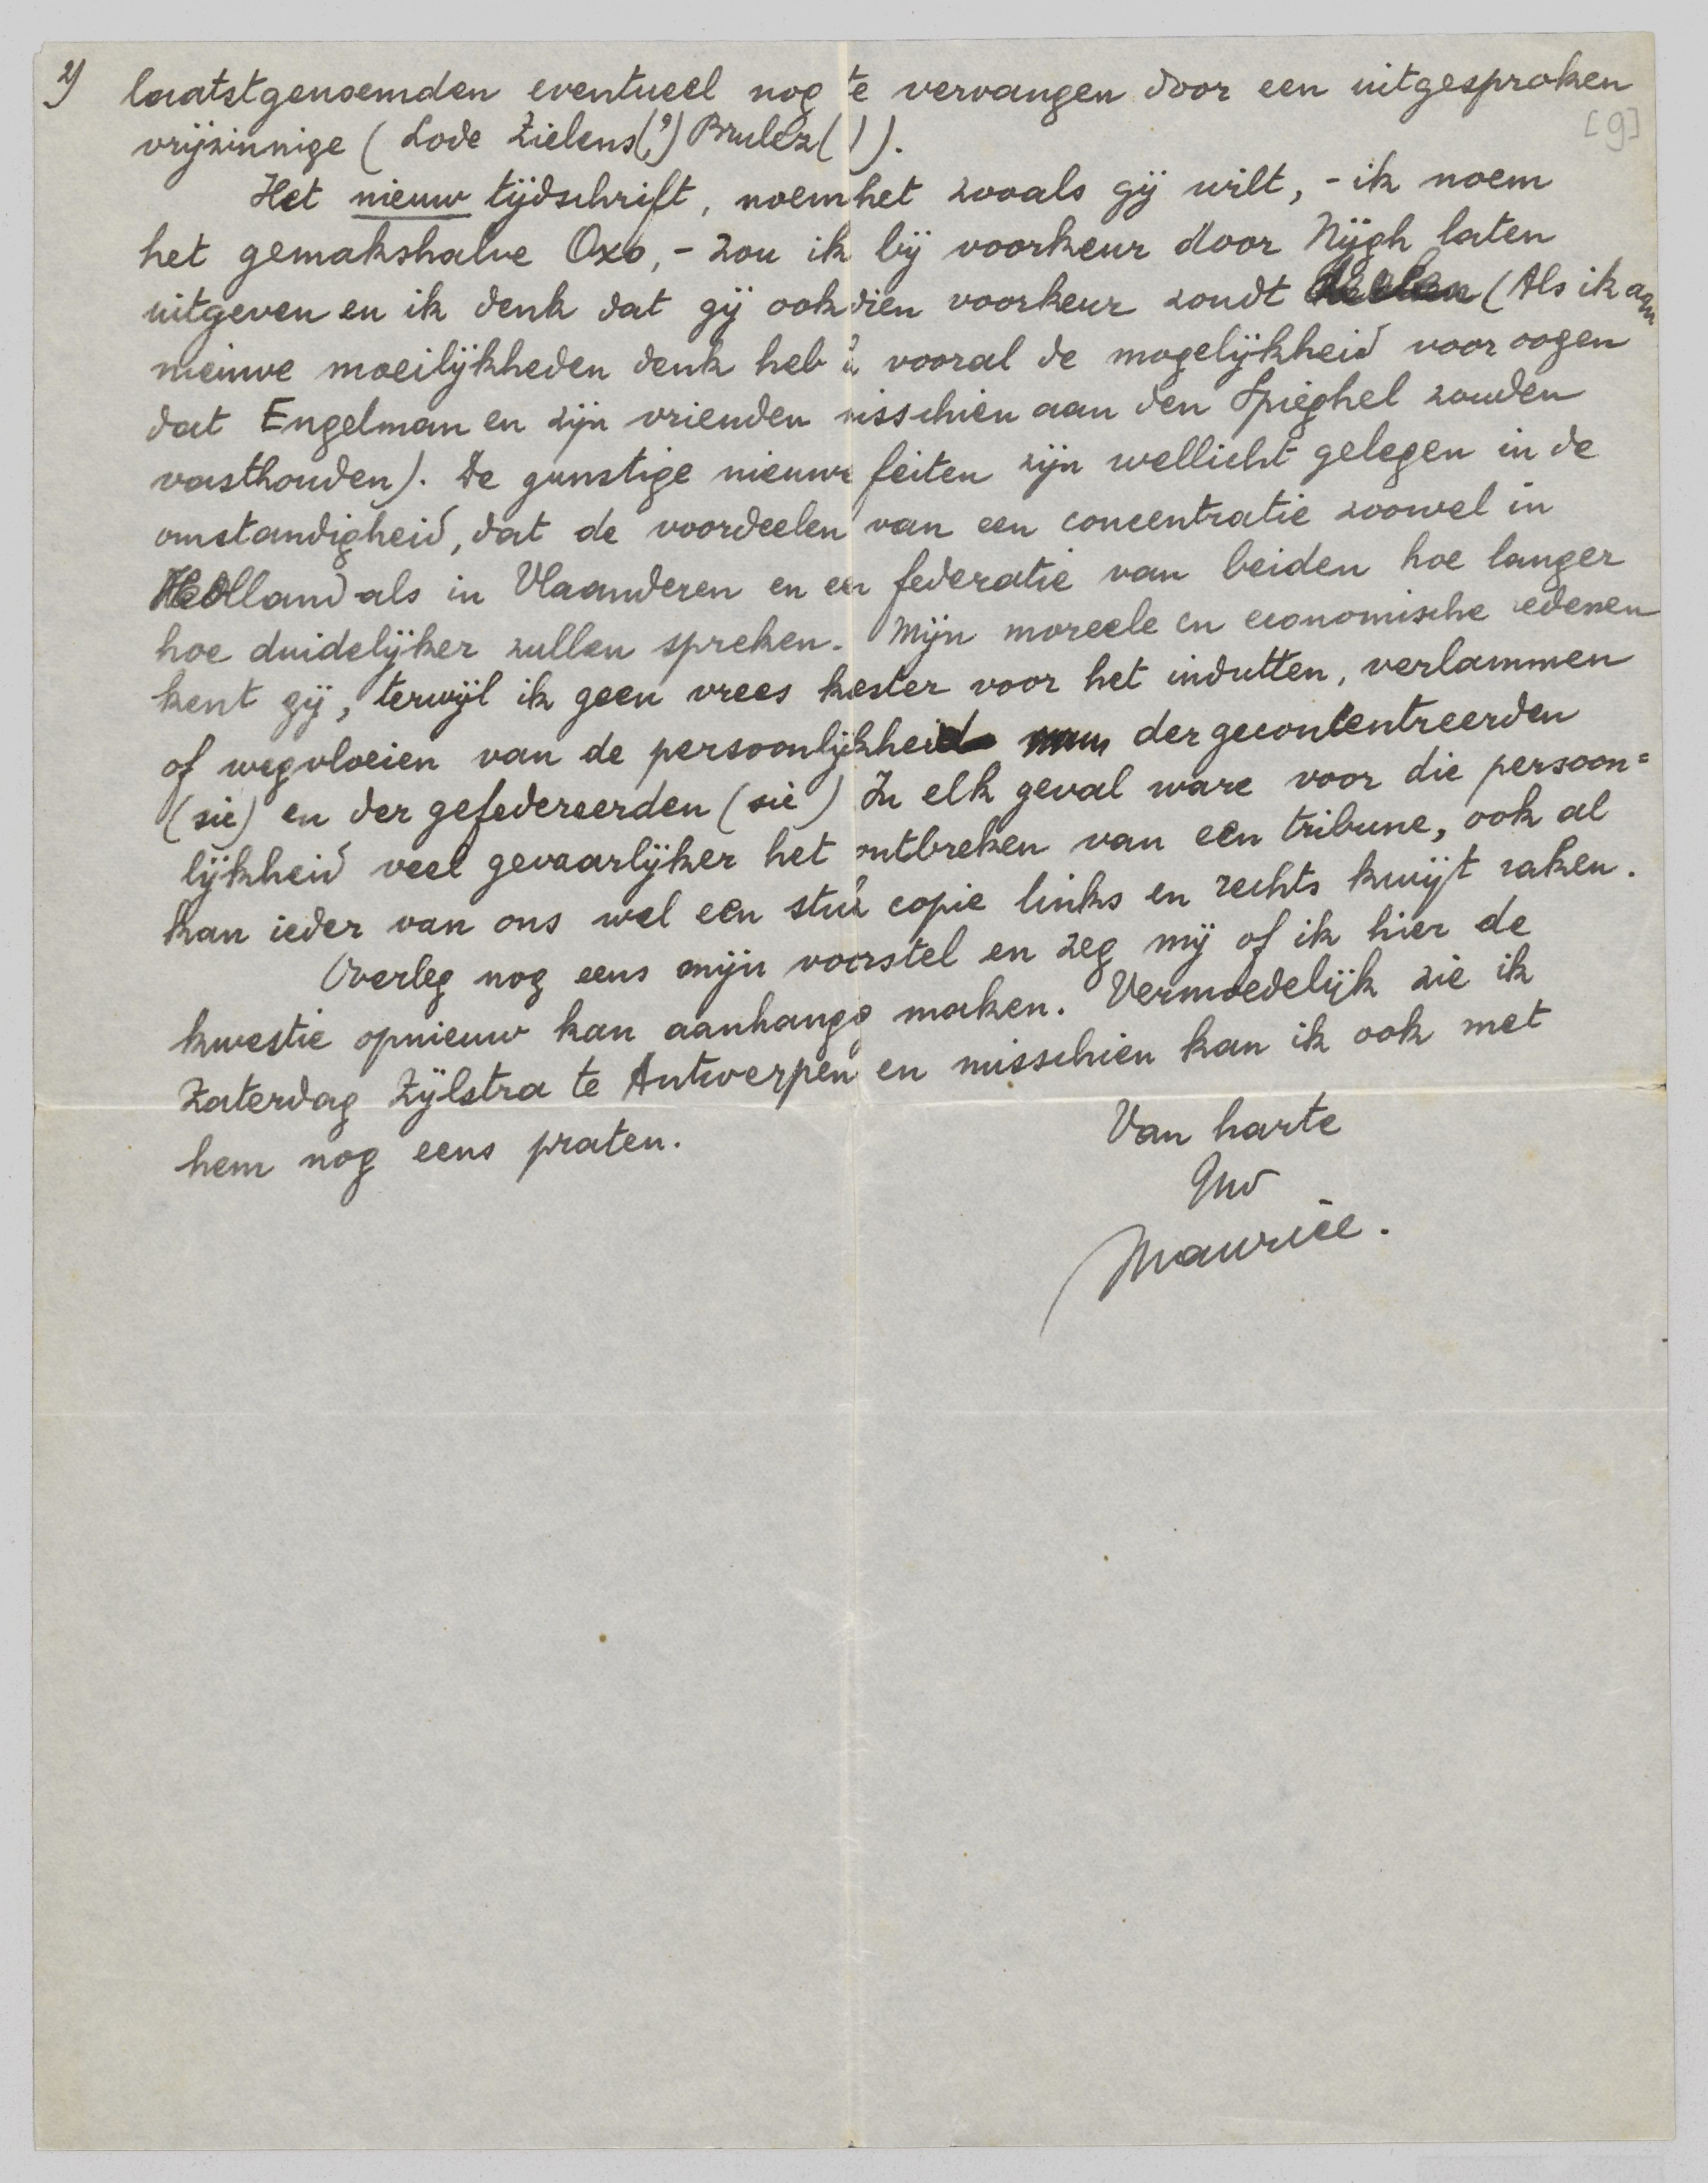 2) laatstgenoemden eventueel nog te vervangen door een uitgesproken
[9]
vrijzinnige (Lode Zielens(?) Brulez( )).
Het nieuw tijdschrift, noem het zooals gij wilt, - ik noem
het gemakshalve Oxo, - zou ik bij voorkeur door Nijgh laten
uitgeven en ik denk dat gij ook dien voorkeur zoudt (Als ik aan
nieuwe moeilijkheden denk heb ik vooral de mogelijkheid voor oogen
dat Engelman en zijn vrienden misschien aan den Spieghel zouden
vasthouden). De gunstige nieuwe feiten zijn wellicht gelegen in de
omstandigheid, dat de voordeelen van een concentratie zoowel in
Holland als in Vlaanderen en een federatie van beiden hoe langer
hoe duidelijker zullen spreken. Mijn moreele en economische redenen
kent gij, terwijl ik geen vrees koester voor het indutten, verlammen
of wegvloeien van de persoonlijkheid der geconcentreerden
(sic) en der gefedereerden (sic) In elk geval ware voor die persoon=
lijkheid veel gevaarlijker het ontbreken van een tribune, ook al
kan ieder van ons wel een stuk copie links en rechts kwijt raken.
Overleg nog eens mijn voorstel en zeg mij of ik hier de
kwestie opnieuw kan aanhangig maken. Vermoedelijk zie ik
Zaterdag Zijlstra te Antwerpen en misschien kan ik ook met
hem nog eens praten.
Van harte
Uw
Maurice.